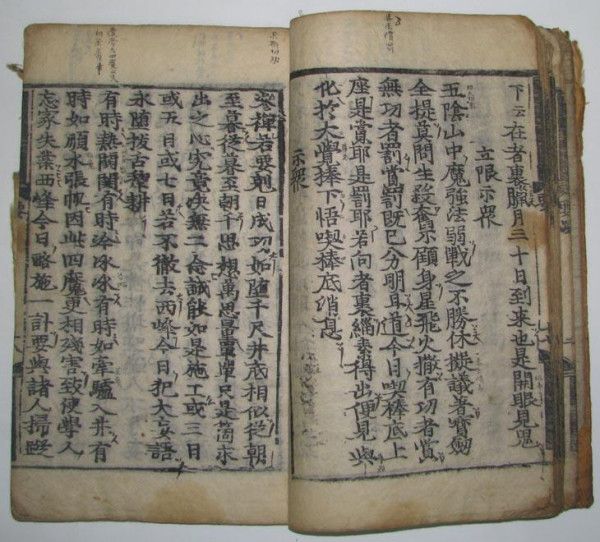 下云在者裏臘月三十日到來也是開眼見鬼
立限示衆
五陰山中魔強法弱戰之不勝休擬議者寶劒
全提莫問生殺奮不顧身星飛火撒有功者賞
無功者罰賞罰旣已分明且道今日喫棒底上
座是賞耶是罰耶若向者裏緇素得出便見興
化於大覺棒下悟喫棒底消息
示衆
叅禪若要剋日成功如墮千尺井底相似從朝
至暮從暮至朝千思想萬思量單單只是箇求
出之心究竟决無二念誠能如是施工或三日
或五日或七日若不徹去西峰今日犯大妄語
永墮拔舌犁耕
有時熱閧閧有時冷冰冰有時如牽驢入井有
時如順水張帆因此四魔更相殘害致使學人
忘家失業西峰今日略施一計要與諸人掃蹤